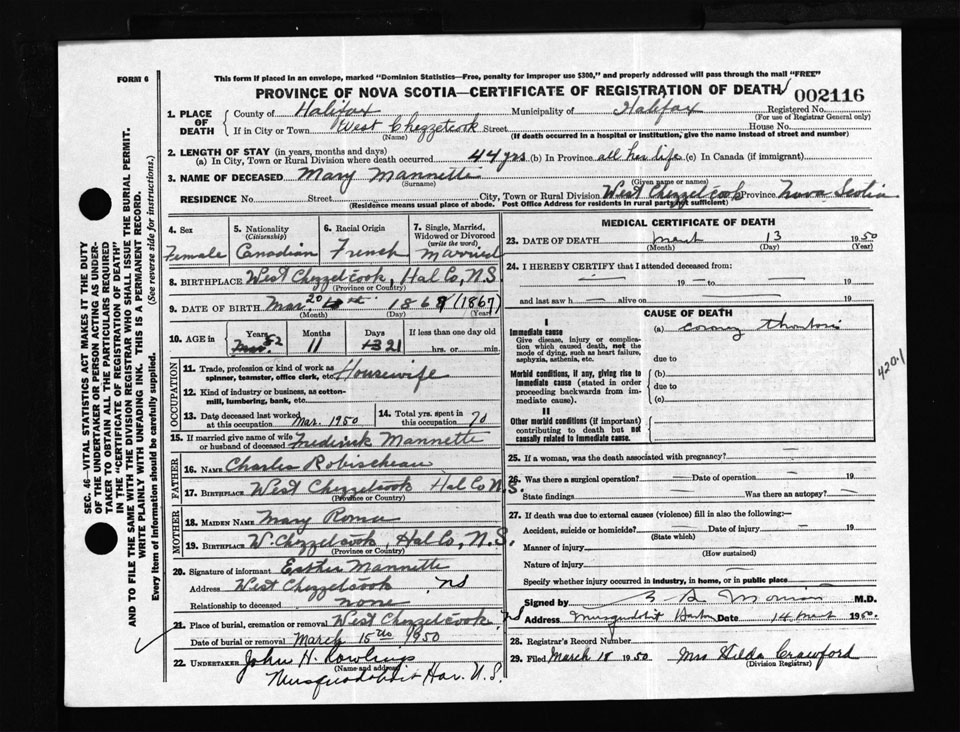 This form if placed in an envelope, marked "Dominion Statistics—Free, penalty for improper use $300," and properly addressed will pass through the mail "FREE"
FORM 6
PROVINCE OF NOVA SCOTIA—CERTIFICATE OF REGISTRATION OF DEATH 002116
1. PLACE OF DEATH County of Halifax Municipality of Halifax Registered No. (For use of Registrar General only)
If in City or Town West Chezzetcook Street House No.
(Name) (If death occurred in a hospital or institution, give the name instead of street and number)
2. LENGTH OF STAY (in years, months and days)
(a) In City, Town or Rural Division where death occurred 44 yrs (b) In Province all her life (c) In Canada (if immigrant)
3. NAME OF DECEASED Mary Mannette
(Surname) (Given name or names)
RESIDENCE No. Street City, Town or Rural Division West Chezzetcook Province Nova Scotia
(Residence means usual place of abode. Post Office Address for residents in rural parts not sufficient)
4. Sex Female
5. Nationality (Citizenship) Canadian
6. Racial Origin French
7. Single, Married, Widowed or Divorced (write the word) Married
8. BIRTHPLACE West Chezzetcook, Hal Co, N.S.
(Province or Country)
9. DATE OF BIRTH Mar. 20 1868 (1867)
(Month) (Day) (Year)
10. AGE in Years 82 Months 11 Days 21 If less than one day old hrs. or min.
OCCUPATION
11. Trade, profession or kind of work as spinner, teamster, office clerk, etc. Housewife
12. Kind of industry or business, as cotton-mill, lumbering, bank, etc.
13. Date deceased last worked at this occupation Mar. 1950
14. Total yrs. spent in this occupation 70
15. If married give name of wife or husband of deceased Frederick Mannette
FATHER
16. NAME Charles Robischeau
17. BIRTHPLACE West Chezzetcook Hal Co N.S.
(Province or Country)
MOTHER
18. MAIDEN NAME Mary Roma
19. BIRTHPLACE W. Chezzetcook, Hal Co, N.S.
(Province or Country)
20. Signature of informant Esther Mannette
Address West Chezzetcook, NS
Relationship to deceased none
21. Place of burial, cremation or removal West Chezzetcook NS
Date of burial or removal March 15th 1950
22. UNDERTAKER John H. Rowlings
(Name and address)
Musquodoboit Har. N.S.
MEDICAL CERTIFICATE OF DEATH
23. DATE OF DEATH 13 1950
(Month) (Day) (Year)
24. I HEREBY CERTIFY that I attended deceased from:
— 19 — to — 19
and last saw h alive on 19
CAUSE OF DEATH
I
Immediate cause (a)
Give disease, injury or complication which caused death, not the mode of dying, such as heart failure, asphyxia, asthenia, etc.
due to
Morbid conditions, if any, giving rise to immediate cause (stated in order proceeding backwards from immediate cause).
(b)
due to
(c)
II
Other morbid conditions (if important) contributing to death but not causally related to immediate cause.
420-1
25. If a woman, was the death associated with pregnancy?
26. Was there a surgical operation? — Date of operation — 19
State findings Was there an autopsy? —
27. If death was due to external causes (violence) fill in also the following:-
Accident, suicide or homicide? Date of injury — 19
(State which)
Manner of injury
(How sustained)
Nature of injury
Specify whether injury occurred in industry, in home, or in public place
Signed by M.D.
Address Date 14 1950
28. Registrar's Record Number
29. Filed March 18 1950 Mrs Hilda Crawford
(Division Registrar)
SEC. 46—VITAL STATISTICS ACT MAKES IT THE DUTY
OF THE UNDERTAKER OR PERSON ACTING AS UNDER-
TAKER TO OBTAIN ALL THE PARTICULARS REQUIRED
IN THE "CERTIFICATE OF REGISTRATION OF DEATH"
AND TO FILE THE SAME WITH THE DIVISION REGISTRAR WHO SHALL ISSUE THE BURIAL PERMIT.
WRITE PLAINLY WITH UNFADING INK. THIS IS A PERMANENT RECORD.
Every item of information should be carefully supplied. (See reverse side for instructions.)